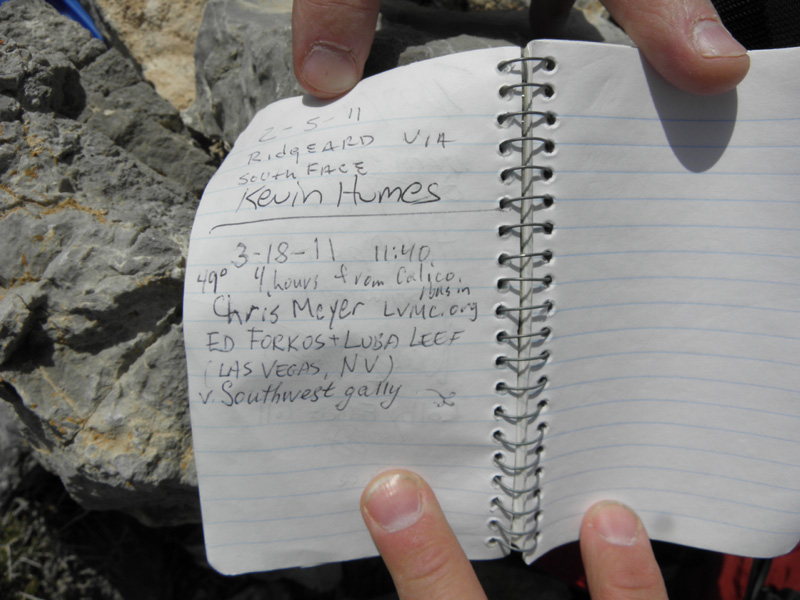 2-5-11
RidgEARD VIA
SOUTH FACE
Kevin Humes
3-18-11 11:40
49° 4 hours from Calico
basin
Chris Meyer LVMC.org
ED FORKOS + LUBA LEEF
(LAS VEGAS, NV)
v. Southwest gally